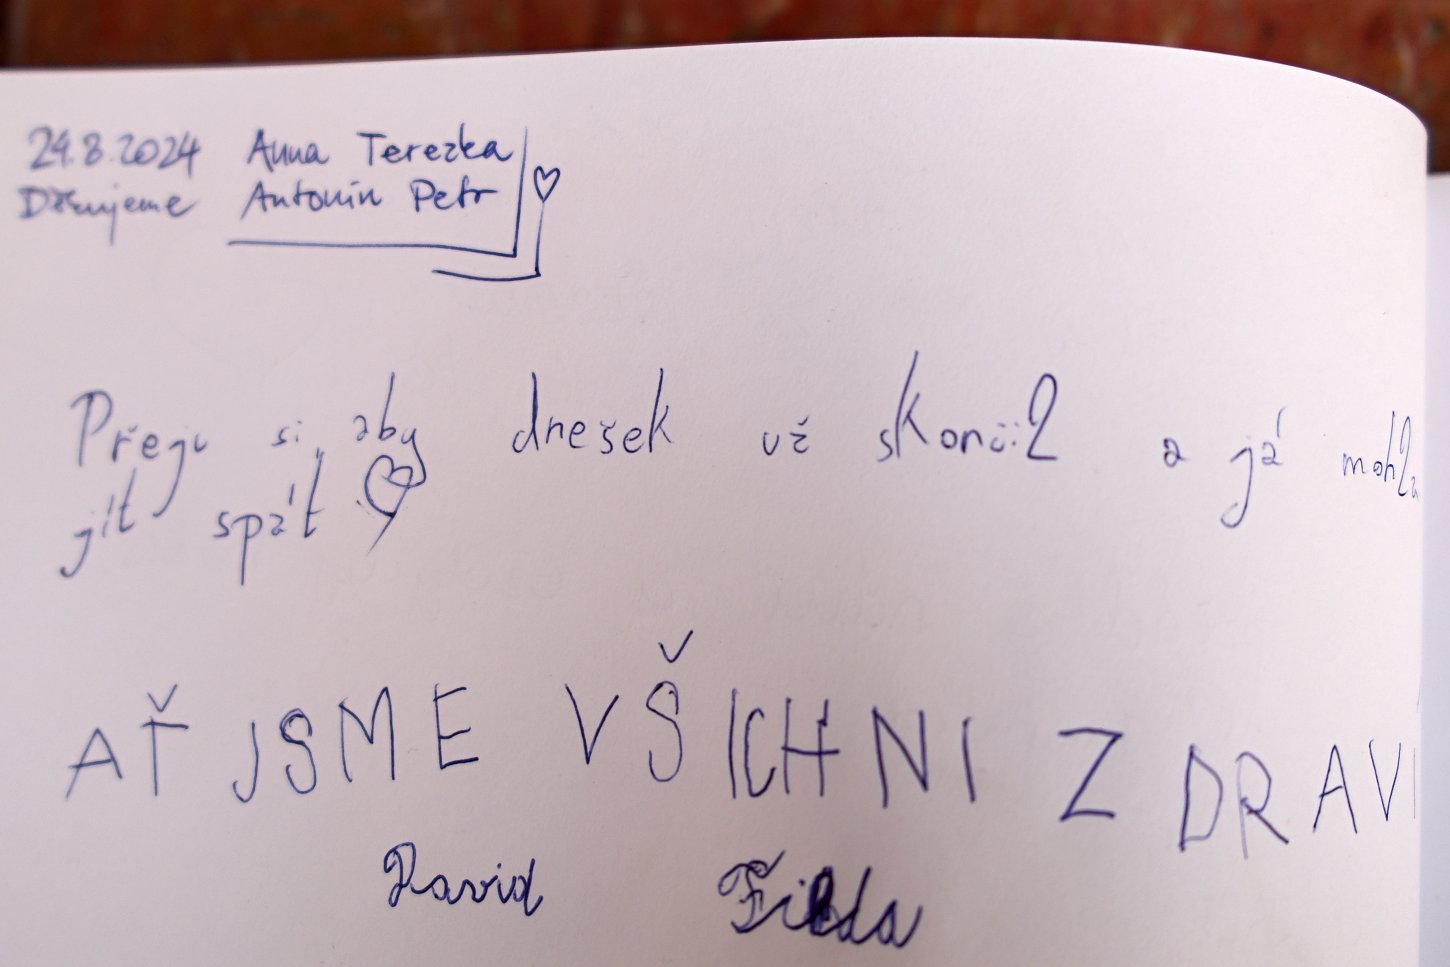 24.8.2024 Anna Terezka
Děkujeme Antonín Petr
Přeju si, aby dnešek už skončil a já mohla
jít spát
AŤ JSME VŠICHNI ZDRAVI
David Filda